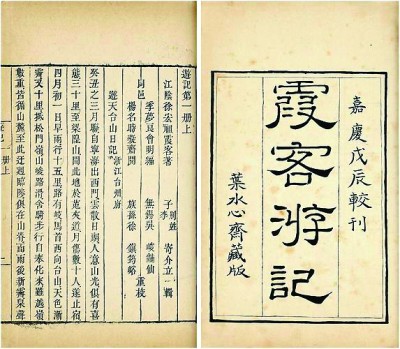 嘉慶戊辰較刊
霞客游記
葉水心齋藏版
遊記第一冊上
江陰徐宏祖霞客著
寄介立輯
同邑
季夢良會明編
楊名時凝齋閱
無錫吳
族孫徐鎮筠峪
重校
遊天台山日記 浙江台州府
癸丑之三月晦自寧海出西門雲散日朗人意山光俱有喜
態三十里至梁隍山聞此地於菟夾道月傷數十人遂止宿
四月初一日早雨行十五里路有岐馬首西向台山天色漸
霽又十里抵松門嶺山峻路滑舍騎步行自奉化來雖越嶺
數重皆循山麓至此迂迴臨陟俱在山脊而雨後新霽泉聲